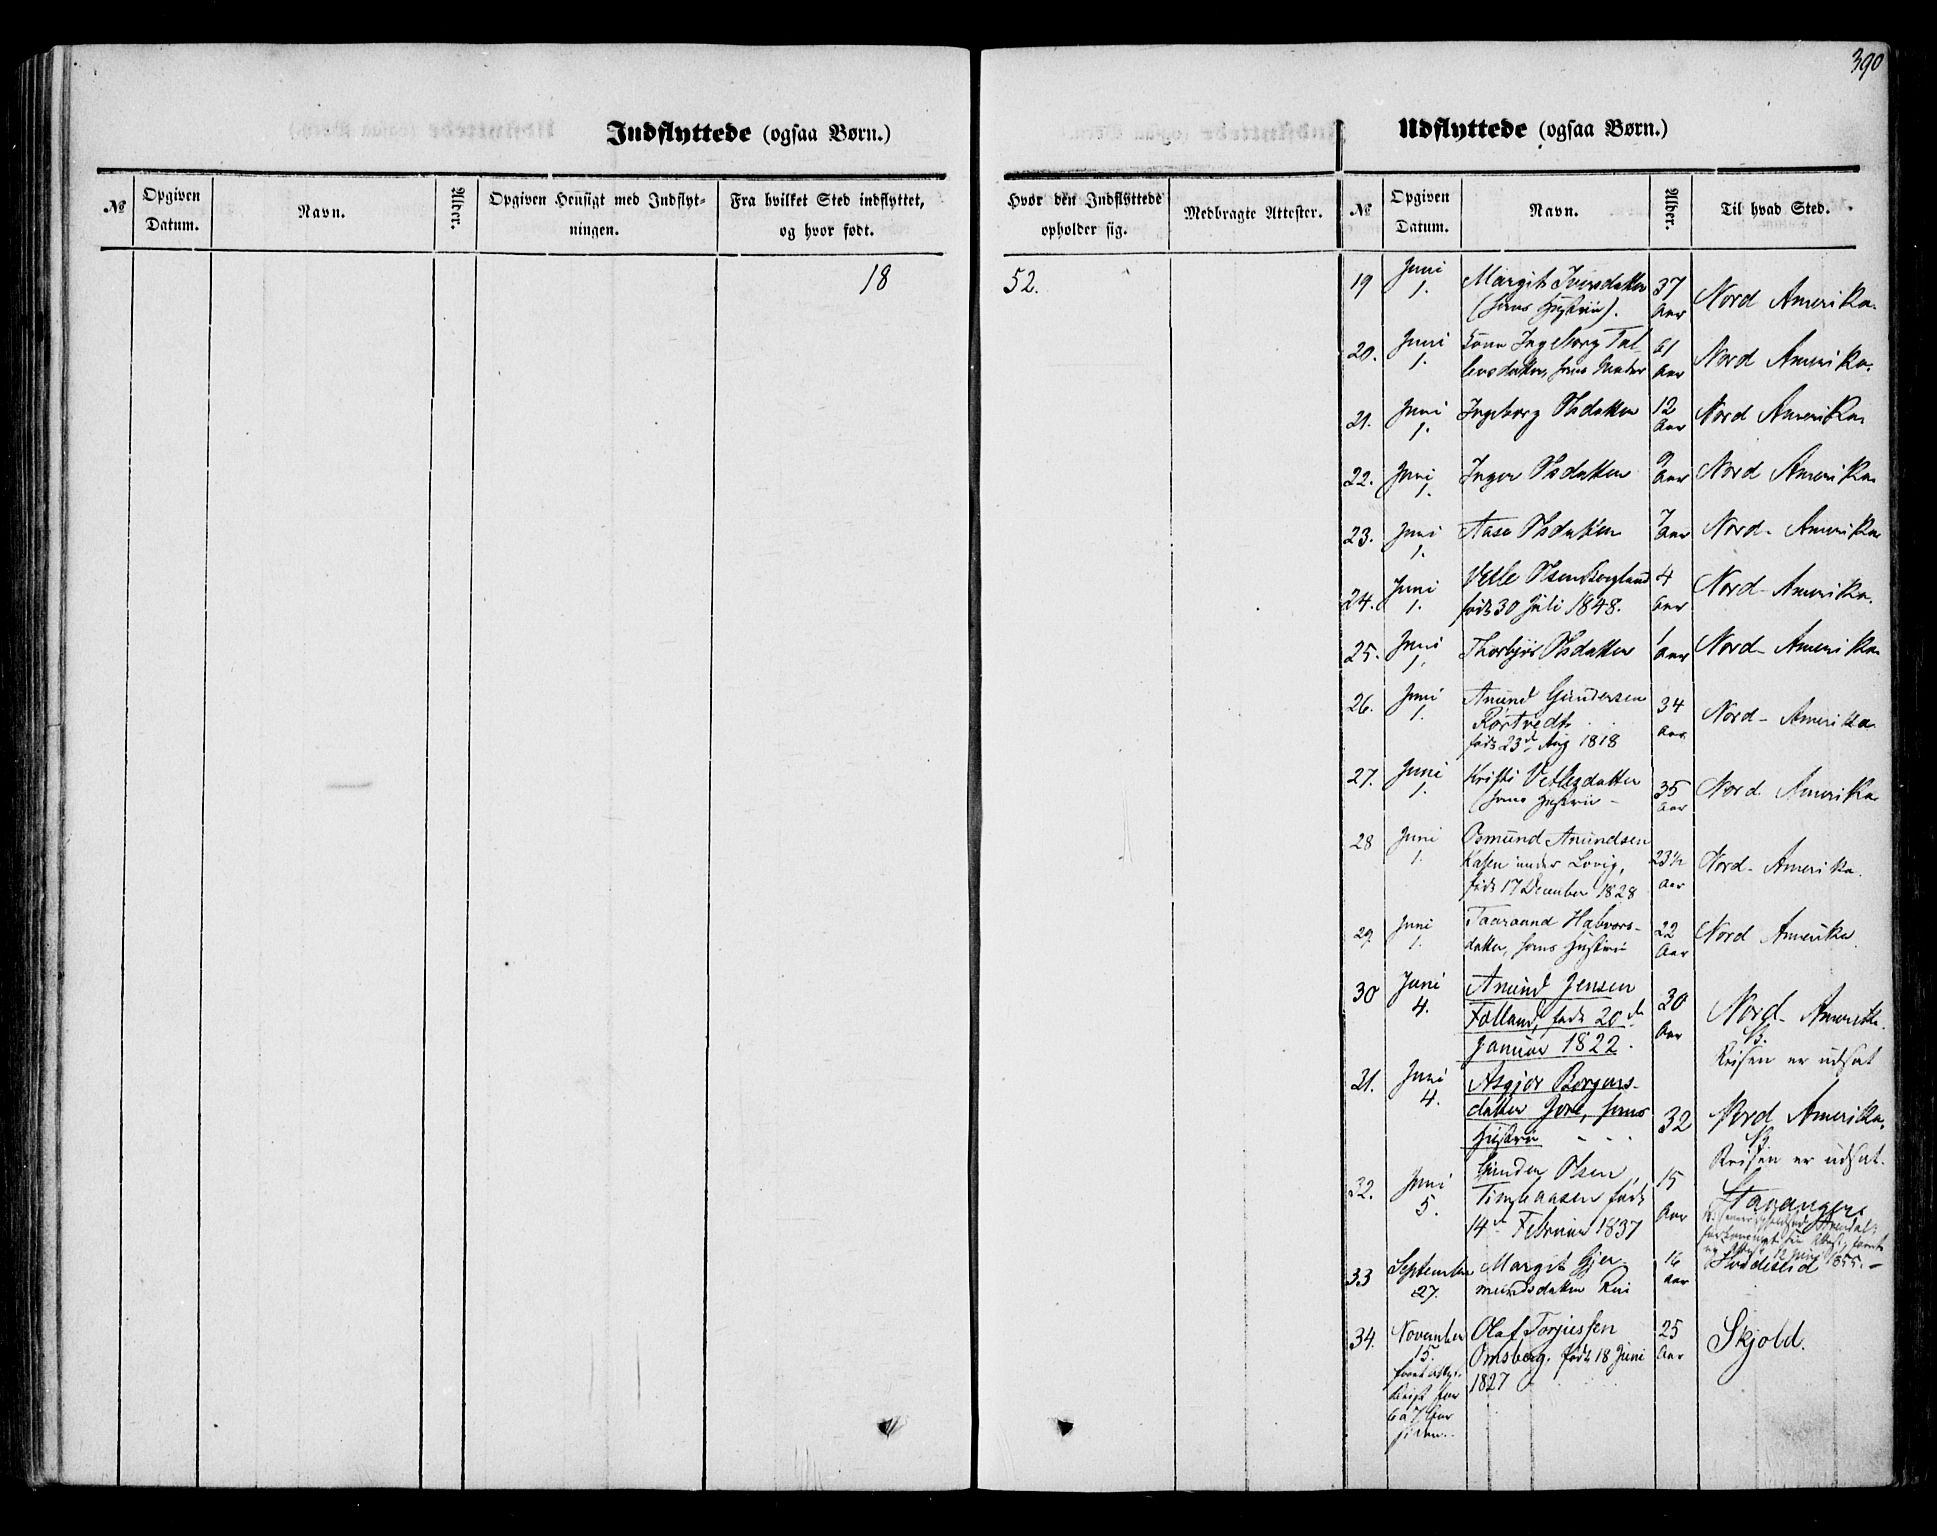 390
Indflyttede (ogsaa Børn.)
Udflyttede (ogsaa Børn.)
№
Opgiven Datum.
Navn.
Alder.
Opgiven Hensigt med Indflyt-
ningen.
Fra hvilket Sted indflyttet,
og hvor født.
Hvor den Indflyttede
opholder sig.
Medbragte Attester.
№
Opgiven Datum.
Navn.
Alder.
Til hvad Sted.
18 52.
19 Juni 1. Margit Iversdatter 37 Aar Nord Amerika.
(hans Hustru).
20. Juni 1. Kone Ingeborg Tal- 61 Aar Nord Amerika.
levsdatter, hans Moder
21. Juni 1. Ingeborg Olsdatter 12 Aar Nord Amerika
22. Juni 1. Inger Olsdatter 9 Aar Nord Amerika
23. Juni 1. Aase Olsdatter 7 Aar Nord-Amerika
24. Juni 1. Vetle Olsen Bergland 4 Aar Nord-Amerika.
født 30 Juli 1848.
25. Juni 1. Thorbjør Olsdatter 1 Aar Nord-Amerika
26. Juni 1. Anund Gundersen 34 Aar Nord-Amerika
Rortvedt
født 23d Aug 1818
27. Juni 1. Kristi Vetlesdatter 35 Aar Nord Amerika
(hans Hustru -
28 Juni 1. Osmund Anundsen 23½ Aar Nord-Amerika.
Kasen under Lovig,
født 17 December 1828
29 Juni 1. Taaraand Halvors- 22 Aar Nord Amerika.
datter, hans Hustru
30 Juni 4. Anund Jensen 30 Aar Nord-Amerika.
Folland, født 20de
Januar 1822.
Reisen er udsat
31. Juni 4. Asgjør Borgers- 32 Nord Amerika.
datter Jore, hans
Hustru
Reisen er udsat.
32. Juni 5. Gunder Olsen 15 Aar Stavanger.
født
14d Februar 1837
12 Juni 1855.
33 September 27. Margit Gjer- 16 Aar Hvideseid
mundsdatter Rui
34. November 15. Olaf Torjussen 25 Aar Skjold.
Omsberg. født 18 Juni
1827